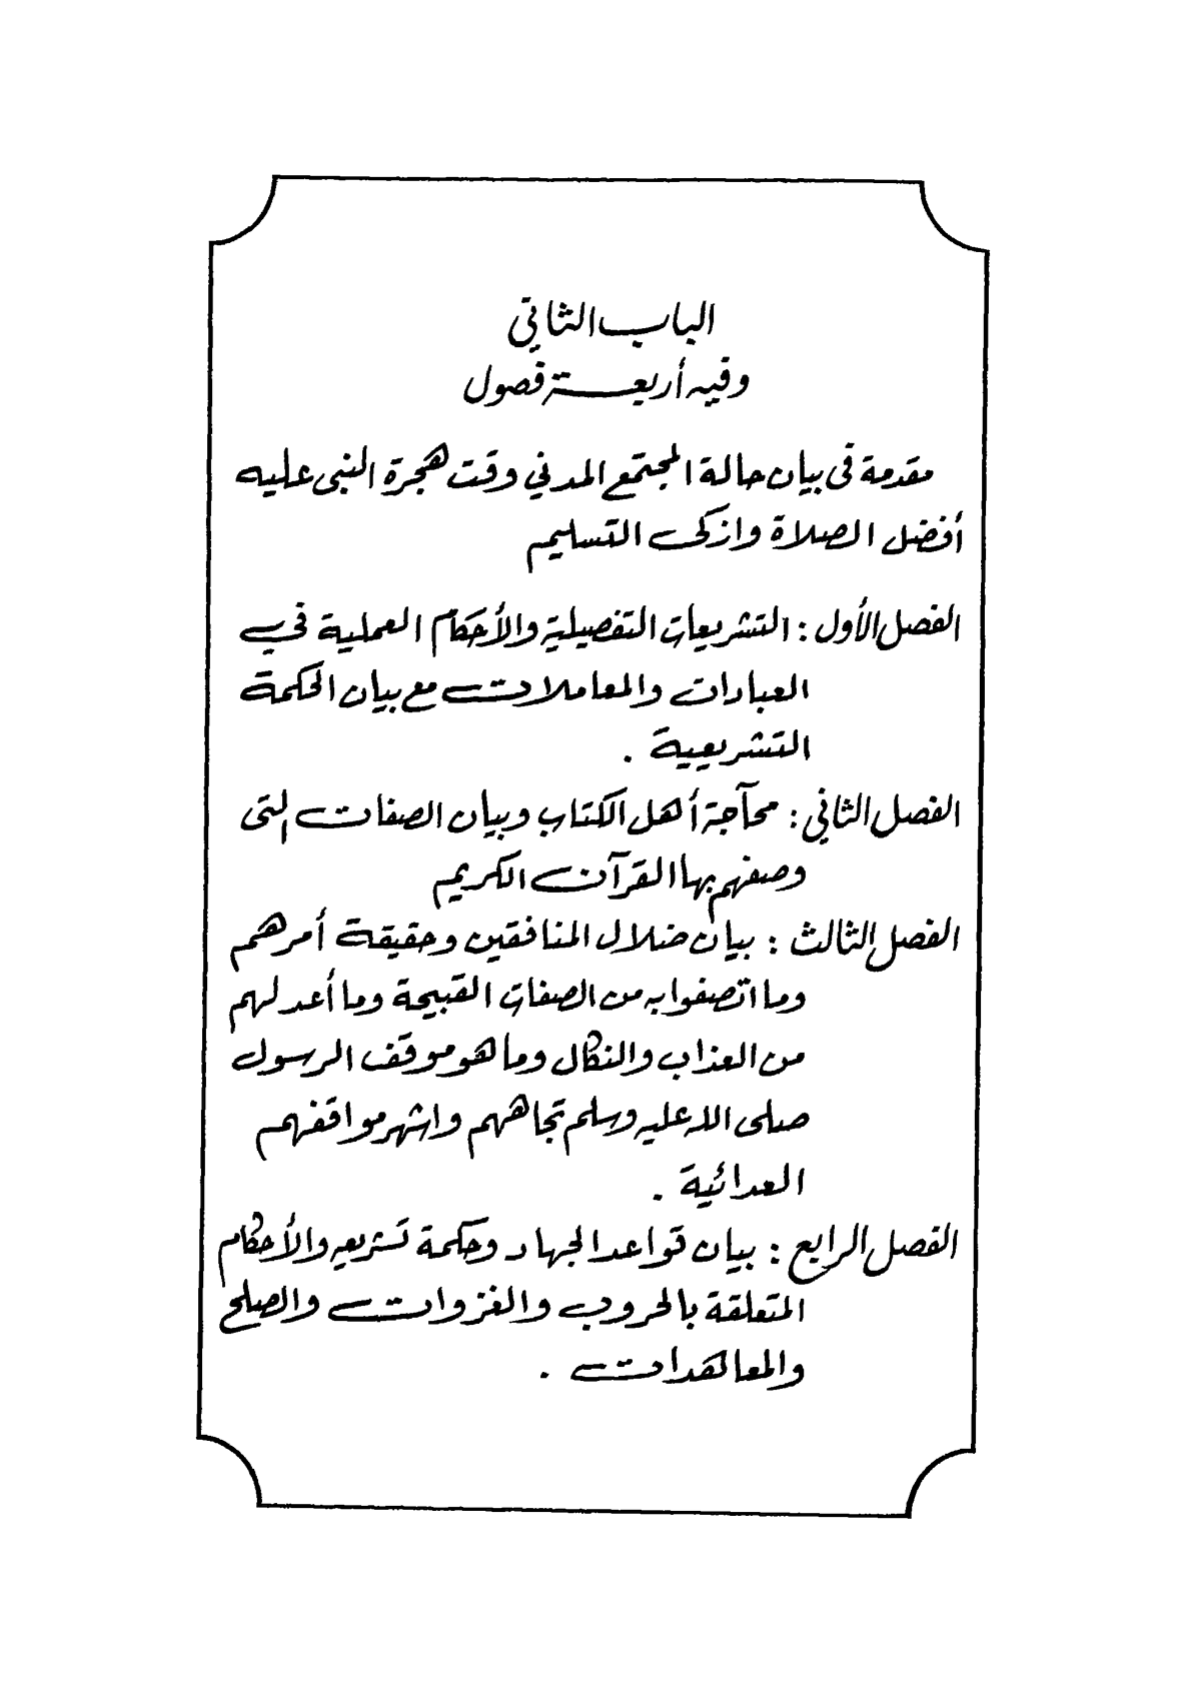 الباب الثاني
وفيه أربعة فصول
مقدمة في بيان حالة المجتمع المدني وقت هجرة النبي عليه
أفضل الصلاة وازكى التسليم
الفصل الأول : التشريعات التفصيلية والأحكام العملية في
العبادات والمعاملات مع بيان الحكمة
التشريعية .
الفصل الثاني : محآجة أهل الكتاب وبيان الصفات التى
وصفهم بها القرآن الكريم
الفصل الثالث : بيان ضلال المنافقين وحقيقة أمرهم
وما اتصفوا به من الصفات القبيحة وما أعد لهم
من العذاب والنكال وما هو موقف الرسول
صلى الله عليه وسلم تجاههم واشهر مواقفهم
العدائية .
الفصل الرابع : بيان قواعد الجهاد وحكمة تشريعه والأحكام
المتعلقة بالحروب والغزوات والصلح
والمعاهدات .